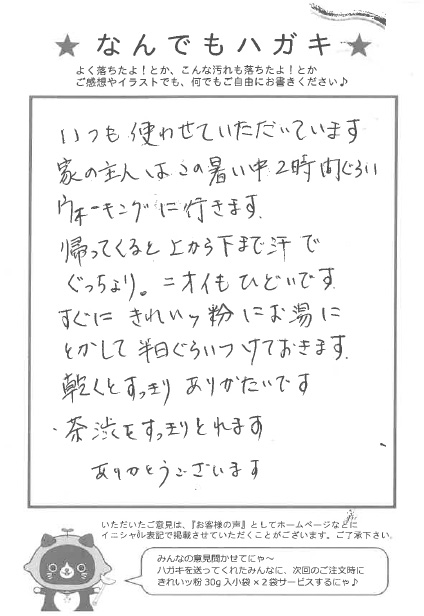 ★なんでもハガキ★
よく落ちたよ！とか、こんな汚れも落ちたよ！とか
ご感想やイラストでも、何でもご自由にお書きください♪
いつも使わせていただいています
家の主人はこの暑い中2時間ぐらい
ウォーキングに行きます。
帰ってくると上から下まで汗で
ぐっちょり。ニオイもひどいです。
すぐにきれいッ粉にお湯に
とかして半日ぐらいつけておきます。
乾くとすっきりありがたいです
・茶渋もすっきりとれます
ありがとうございます
いただいたご意見は、『お客様の声』としてホームページなどに
イニシャル表記で掲載させていただくことがございます。ご了承下さい。
みんなの意見聞かせてにゃ～
ハガキを送ってくれたみんなに、次回のご注文時に
きれいッ粉30g入小袋×2袋サービスするにゃ♪